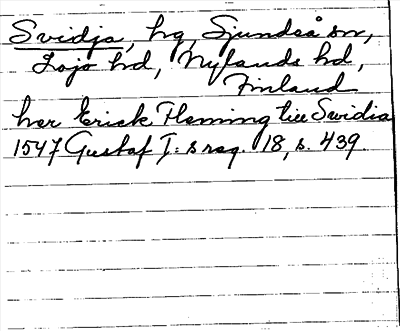 Svidja, hg, Sjundeå sn,
Lojo hd, Nylands hd,
Finland
her Erick Fleming till Svidia
1547 Gustaf I: s reg. 18, s. 439.